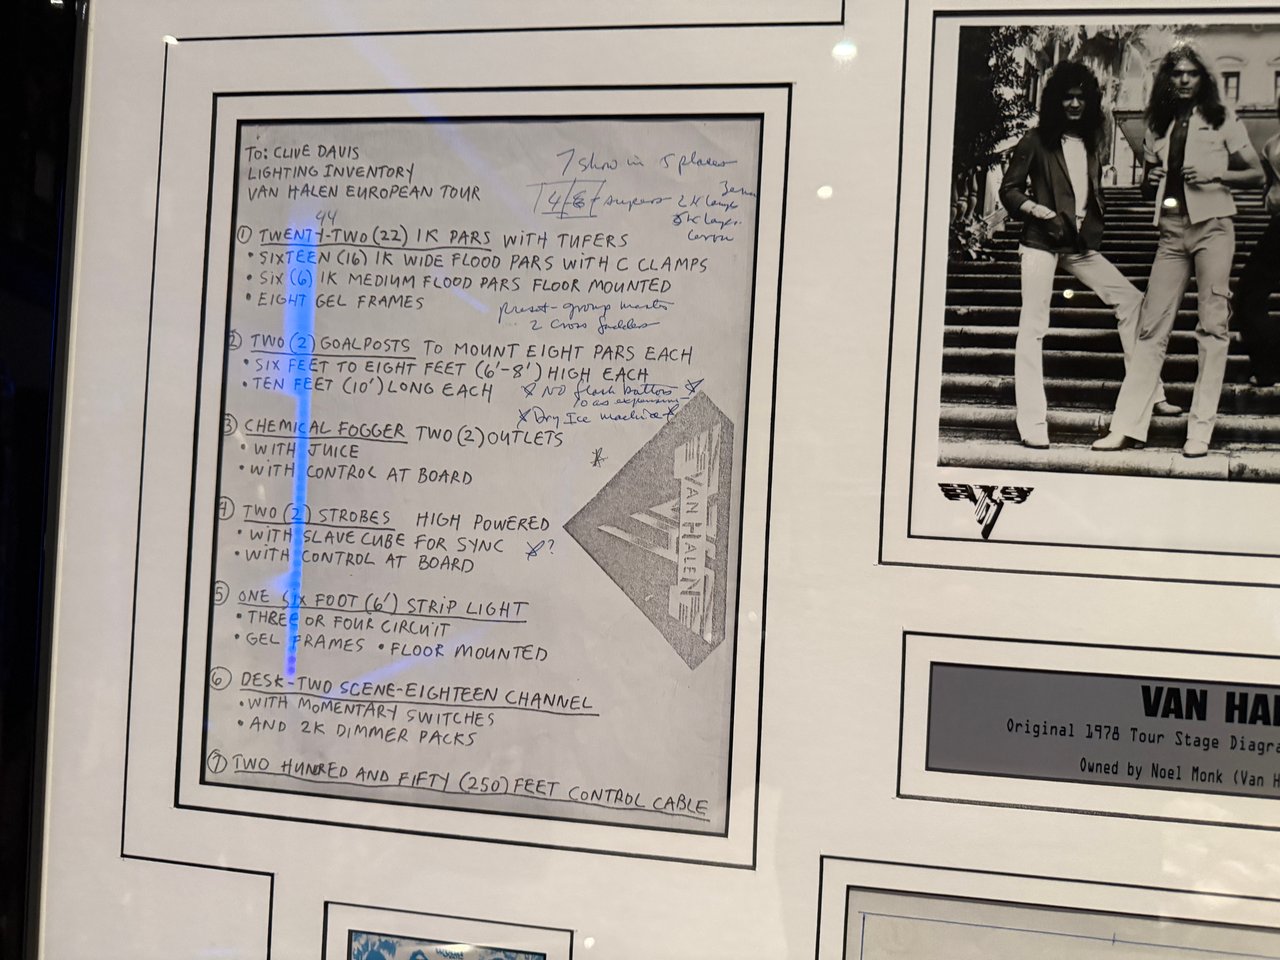 To: CLIVE DAVIS
LIGHTING INVENTORY
VAN HALEN EUROPEAN TOUR
7 show in 5 places
44
① TWENTY-TWO (22) 1K PARS WITH TUFERS
• SIXTEEN (16) 1K WIDE FLOOD PARS WITH C CLAMPS
• SIX (6) 1K MEDIUM FLOOD PARS FLOOR MOUNTED
• EIGHT GEL FRAMES
preset-group master
2 cross faders
② TWO (2) GOALPOSTS TO MOUNT EIGHT PARS EACH
• SIX FEET TO EIGHT FEET (6'-8') HIGH EACH
• TEN FEET (10') LONG EACH
NO flash buttons
Dry Ice machine
③ CHEMICAL FOGGER TWO (2) OUTLETS
• WITH JUICE
• WITH CONTROL AT BOARD
④ TWO (2) STROBES HIGH POWERED
• WITH SLAVE CUBE FOR SYNC ?
• WITH CONTROL AT BOARD
⑤ ONE SIX FOOT (6') STRIP LIGHT
• THREE OR FOUR CIRCUIT
• GEL FRAMES • FLOOR MOUNTED
⑥ DESK-TWO SCENE-EIGHTEEN CHANNEL
• WITH MOMENTARY SWITCHES
• AND 2K DIMMER PACKS
⑦ TWO HUNDRED AND FIFTY (250) FEET CONTROL CABLE
VAN HALEN
VAN HAL
Original 1978 Tour Stage Diagra
Owned by Noel Monk (Van H